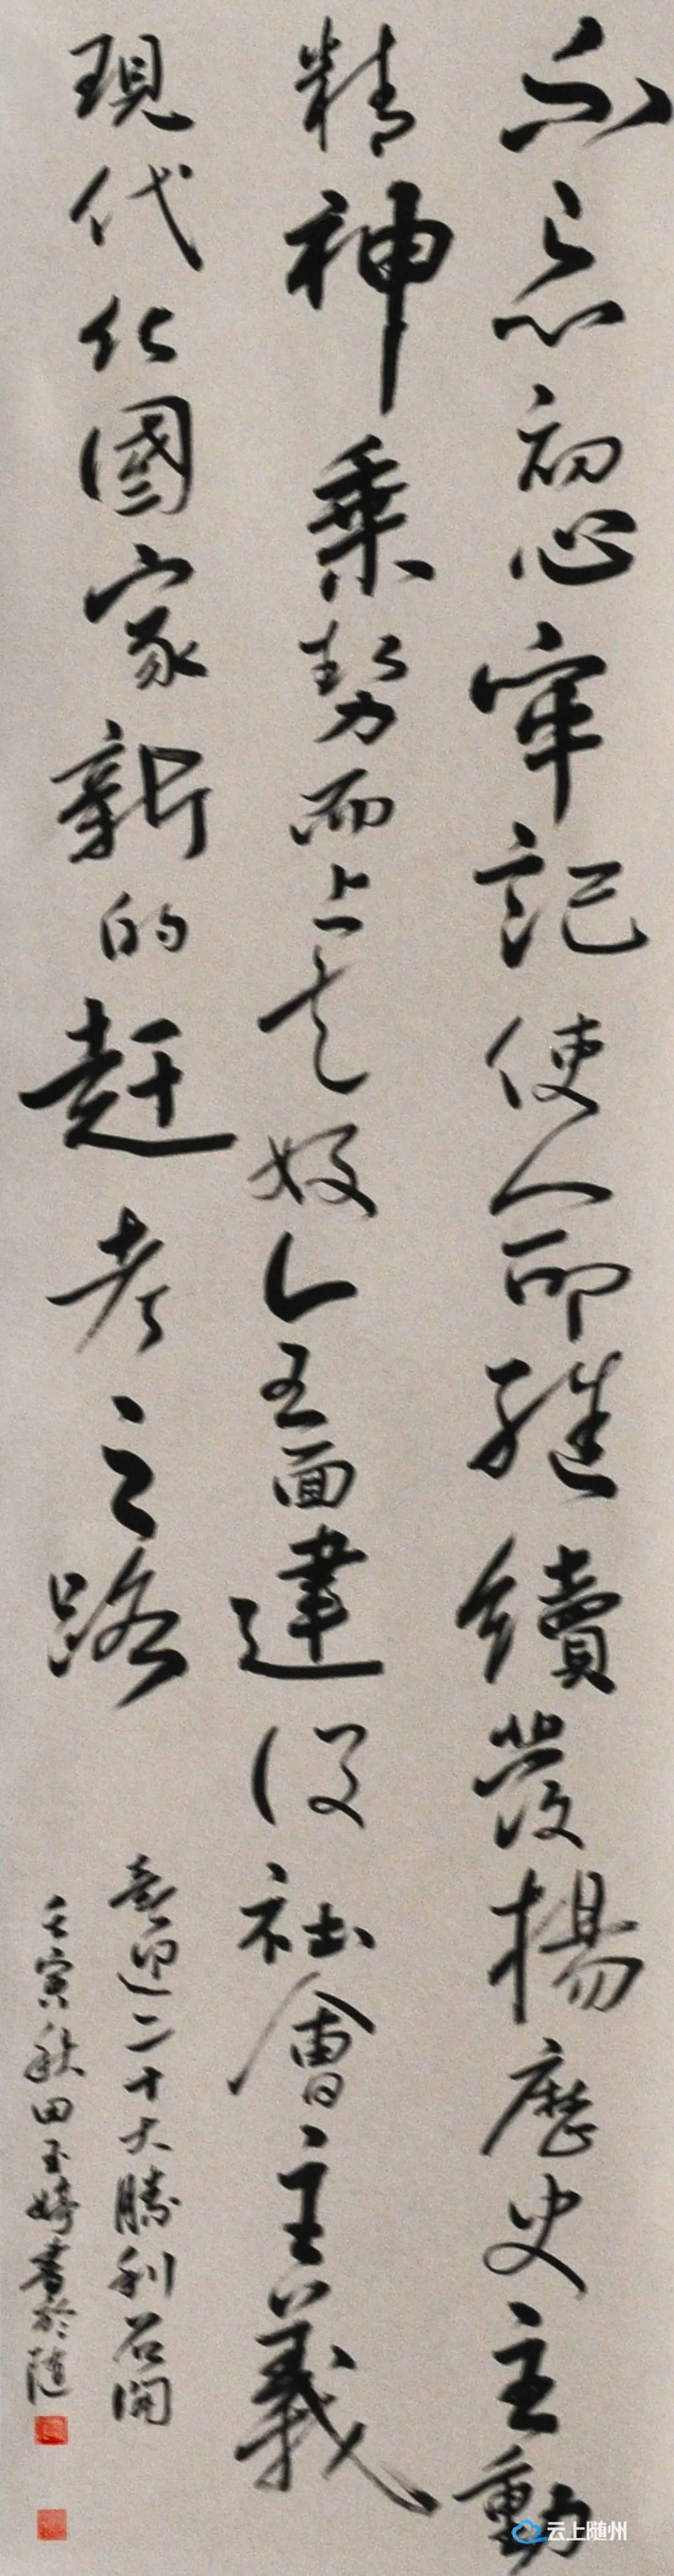 不忘初心牢記使命繼續發揚歷史主動
精神乘勢而上走好全面建設社會主義
現代化國家新的赶考之路
喜迎二十大勝利召開
壬寅秋田玉書於随
云上随州